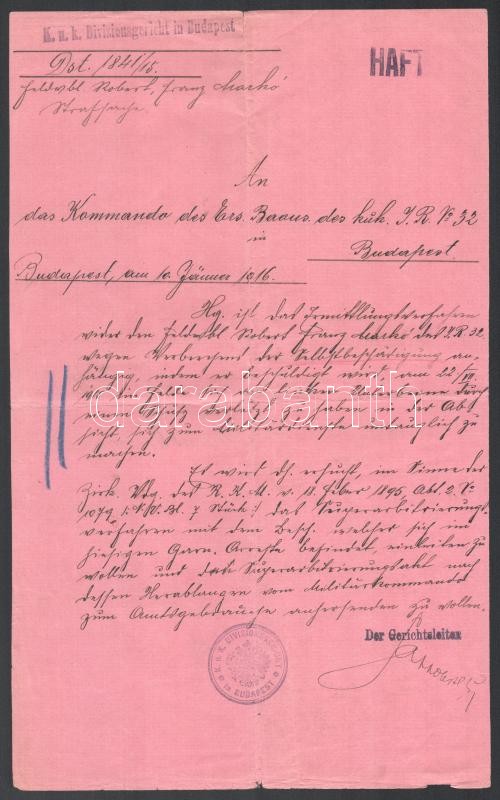 K. u. k. Divisionsgericht in Budapest
Dst. 1841/15.
HAFT
Feldwbl Robert, Franz Markó
Strafsache
An
das Kommando des Ers. Baons. des kuk. I. R. № 32
in
Budapest.
Budapest, am 10. Jänner 1916.
Hg. ist das Ermittlungsverfahren
wider den Feldwbl Robert Franz Markó des I.R. 32
wegen Verbrechens der Selbstbeschädigung an-
hängig, indem er beschuldigt wird, am 22/
im Felde sich am linken durch
einen Schuß verletzt zu haben in der Ab-
sicht, sich zum Militärdienste untauglich zu
machen.
Es wird dh. ersucht, im Sinne der
Zirk. Vdg. des R. K. M. v. 18. 1895, Abt. 2. №
1079 7 Stück: das Superarbitrierungs-
verfahren mit dem Besch. welcher sich im
hiesigen Garn. Arreste befindet, einleiten zu
wollen und den Superarbitrierungsakt nach
dessen Herablangen vom Militärkommando
zum Amtsgebrauche anhersenden zu wollen.
Der Gerichtsleiter
K. u. K. DIVISIONSGERICHT
in BUDAPEST
darabanth